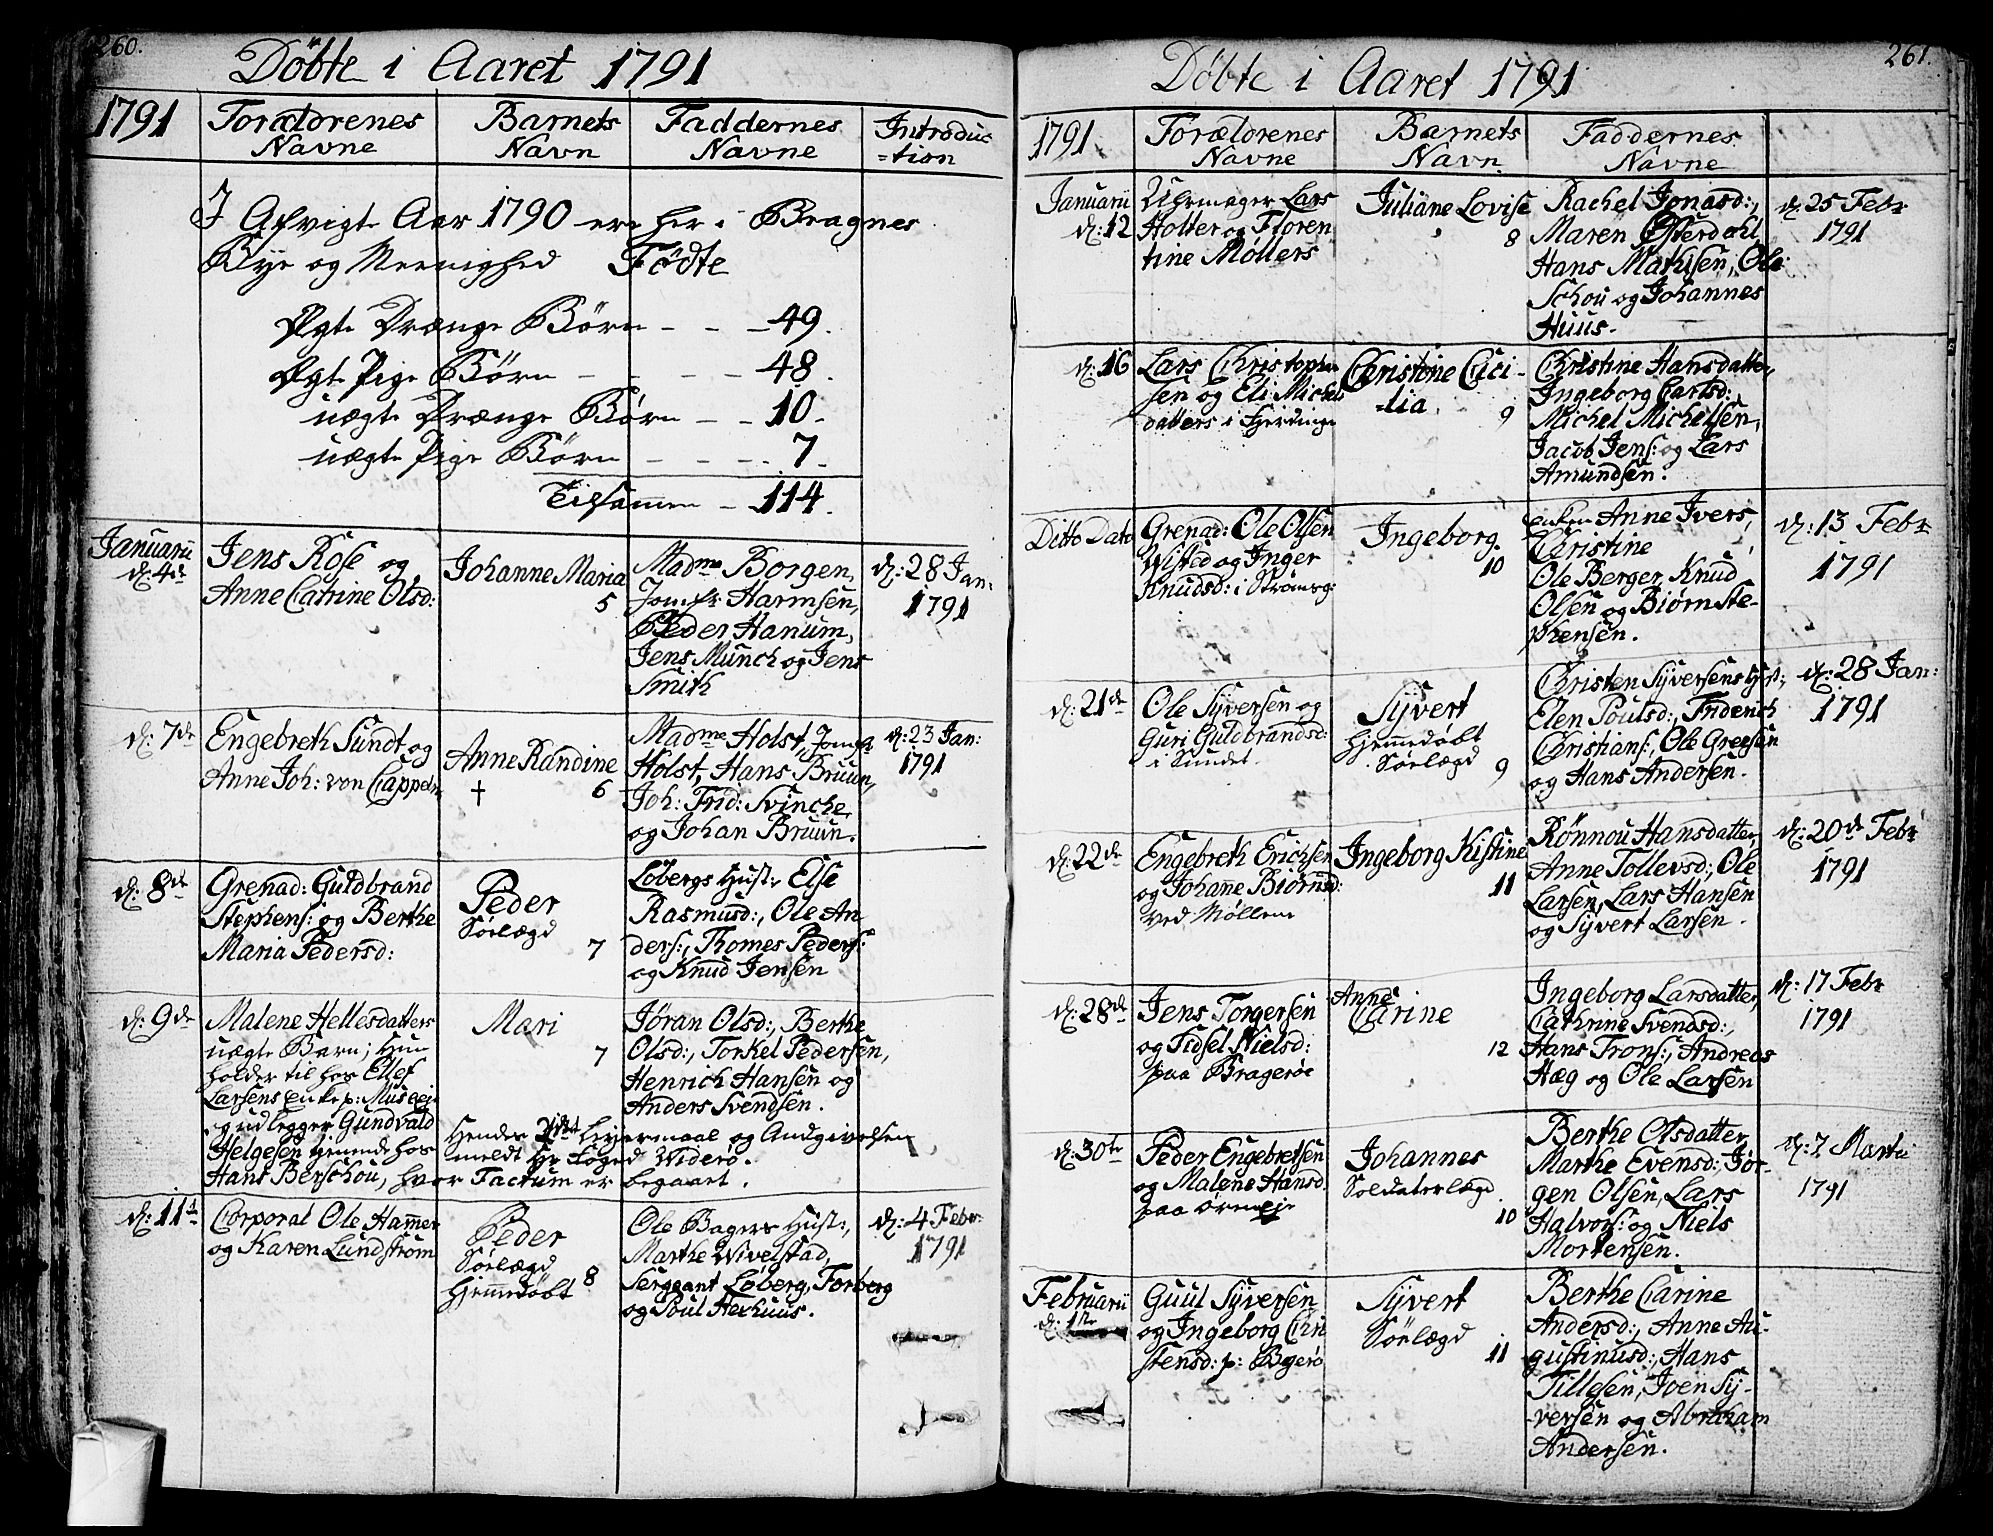 260.
Döbte i Aaret 1791
1791
Forældrenes
Navne
Barnets
Navn
Faddernes
Navne
Introduc
=tion
I Afvigte Aar 1790 ere her i Bragnes
Bye og Meenighed Födte
Ægte Drænge Börn - - - 49.
Ægte Pige Börn - - - - 48.
uægte Drænge Börn - - 10.
uægte Pige Börn - - - - 7.
Tilsamen - 114.
Januarii
d: 4de
Jens Rose og
Anne Catrine Olsd:
Johanne Maria
5
Madme Borgen,
Jomfr: Harmsen,
Peder Hanum,
Jens Münch og Jens
Smith
d: 28 Jan:
1791
d: 7de
Engebreth Sundt og
Anne Joh: von Cappeln
Anne Randine
† 6
Madme Holst, Jomfr
Holst, Hans Bruun,
Joh: Frid: Svincke
og Johan Bruun.
d: 23 Jan:
1791
d: 8de
Grenad: Guldbrand
Stephens: og Berthe
Maria Pedersd:
Peder
Sölægd
7
Löbergs Hust: Else
Rasmusd:, Ole An
ders:, Thomes Peders:
og Knud Jensen
d: 9de
Malene Hellesdatters
uægte Barn; Hun
holder til hos Ellef
Larsens Enke p:
og udlegger Gundvald
Helgesen tjenende hos
Hans Berschou, hvor Factum er begaaet.
Mari
7
Jöran Olsd:, Berthe
Olsd:, Torkel Pedersen,
Henrich Hansen og
Anders Svendsen.
Hendes 2det Leyermaal og Andgivelsen
meldt
d: 11te
Corporal Ole Hammer
og Karen Lundström
Peder
Sölægd
Hjemedöbt 8
Ole Bagers Hust:,
Marthe Wivelstad,
Sergeant Löberg, Forberg
og Poul Herhuus.
d: 4 Febr:
1791
261.
Döbte i Aaret 1791
1791
Forældrenes
Navne
Barnets
Navn.
Faddernes
Navne
Januarii
d: 12
Uhrmager Lars
Holter og Floren
tine Möllers
Juliane Lovise
8
Rachel Jonasd:,
Maren Österdahl,
Hans Mathisen, Ole
Schou og Johannes
Huus.
d: 25 Febr
1791
d: 16
Lars Christophe
sen og Eli Michels
datters i Fjerdinge
Christine Cici-
=lia. 9
Christine Hansdatter,
Ingeborg Carlsd:
Michel Michelsen,
Jacob Jens: og Lars
Amundsen.
Ditto Dato
Grenad: Ole Olsen
Wisted og Inger
Knudsd: i Strömsg:
Ingeborg.
10
enken Anne Ivers,
Christine
Ole Berger, Knud
Olsen og Biörn Ste-
phensen.
d: 13 Febr
1791
d: 21de
Ole Syversen og
Guri Guldbrandsd:
i Sundet.
Syvert
Hjemedöbt
Sölægd 9
Christen Syversens Hust:,
Elen Poulsd:, Friderich
Christians:, Ole Greesen
og Hans Andersen.
d: 28 Jan:
1791
d: 22de
Engebreth Erichsen
og Johane Biörnsd:
ved Möllene
Ingeborg Kistine
11
Rönnou Hansdatter,
Anne Tollevsd:, Ole
Larsen, Lars Hansen
og Syvert Larsen.
d: 20de Febr
1791
d: 28de
Jens Torgersen
og Sidsel Nielsd:
paa Brageröe
Anne
Carine
12
Ingeborg Larsdatter,
Cathrine Svendsd:,
Hans Trons:, Andreas
Hæg og Ole Larsen
d: 17 Febr
1791
d: 30te
Peder Engebretsen
og Malene Hansd.
paa Örneeje
Johannes
Soldaterlægd.
10
Berthe Olsdatter,
Marthe Evensd:, Jör-
gen Olsen, Lars
Halvors: og Niels
Mortensen.
d: 7 Martii
1791
Februarii
d: 1te
Guul Syversen
og Ingeborg Chri
stensd: p: Bgerö
Syvert
Sölægd
11
Berthe Carine
Andersd:, Anne Au-
gustinusd:, Hans
Tillesen, Joen Sy-
versen og Abraham
Andersen.